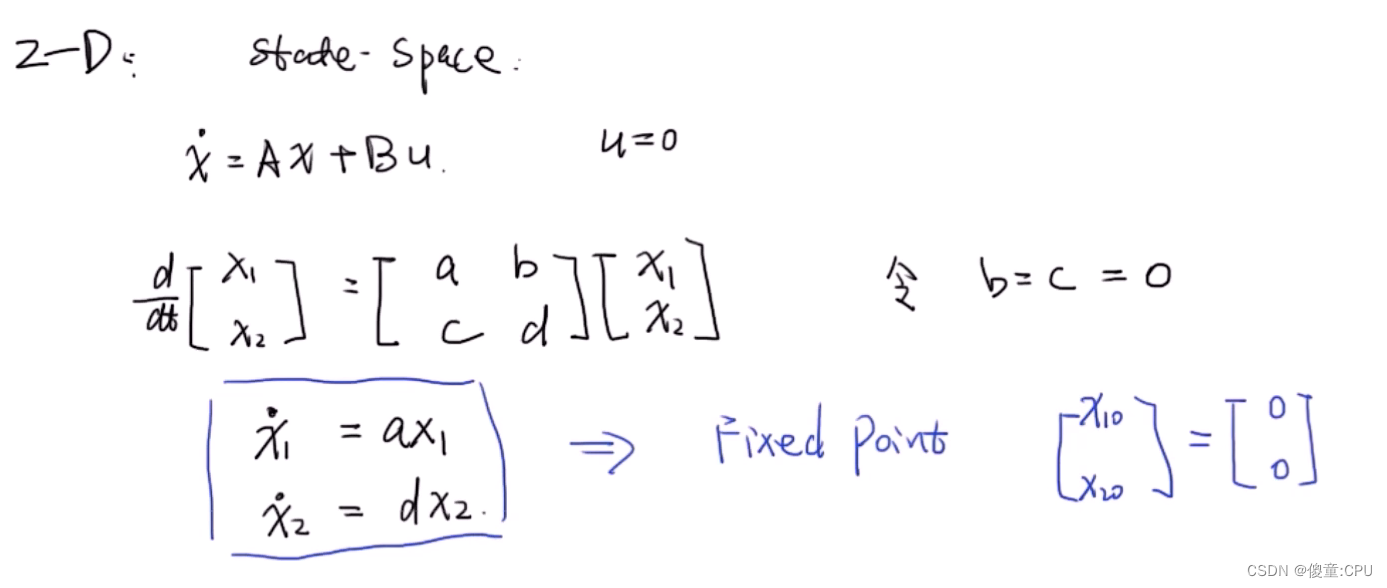 2-D: state-space.
ẋ = Ax + Bu. u=0
d/dt [x₁ x₂] = [a b c d] [x₁ x₂] 令 b = c = 0
ẋ₁ = ax₁
⇒ Fixed Point [x₁₀ x₂₀] = [0 0]
ẋ₂ = dx₂.
CSDN @傻童:CPU